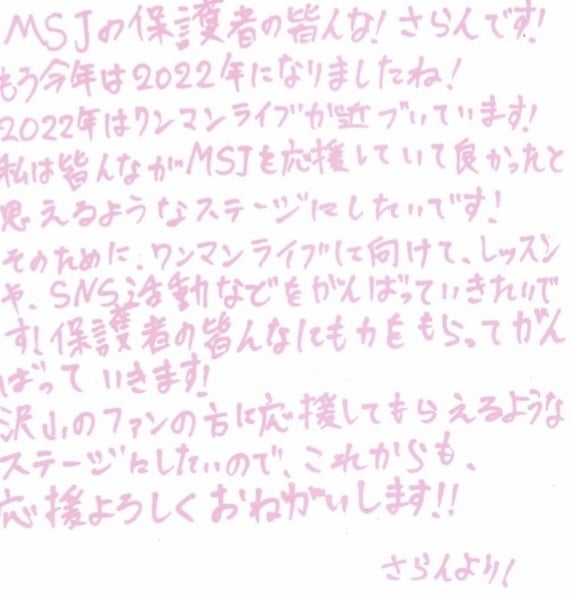 MSJの保護者の皆んな!さらんです!
もう今年は2022年になりましたね!
2022年はワンマンライブが近づいています!
私は皆んながMSJを応援していて良かったと
思えるようなステージにしたいです!
そのために、ワンマンライブに向けて、レッスン
や、SNS活動などをがんばっていきたいで
す!保護者の皆んなにも力をもらってがん
ばっていきます!
沢山のファンの方に応援してもらえるような
ステージにしたいので、これからも、
応援よろしくおねがいします!!
さらんより!